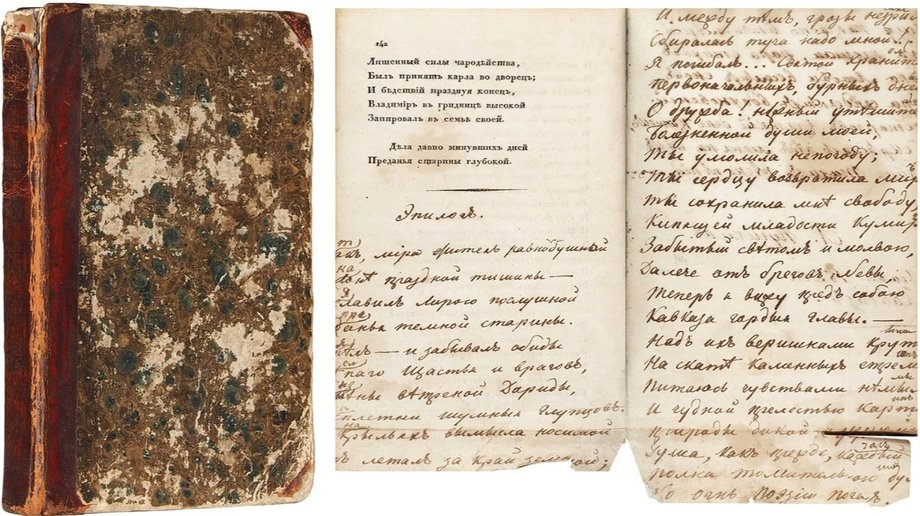 142
Лишенный силы чародѣйства,
Былъ принятъ карла во дворецъ;
И бѣдствій празднуя конецъ,
Владиміръ въ гридницѣ высокой
Запировалъ въ семьѣ своей.
Дѣла давно минувшихъ дней
Преданья старины глубокой.
Эпилогъ.
міра житель равнодушный
праздной тишины —
лирою послушной
темной старины.
— и забывалъ обиды
щастья и враговъ,
вѣтреной Дориды,
шумныхъ глупцовъ.
вымысла носимой
леталъ за край земной;
И между тѣмъ, грозы
Сбиралась туча надо мной
Я погибалъ... Святой
Первоначальныхъ, бурныхъ
О дружба! нѣжный
болѣзненной души моей,
Ты умолила непогоду;
Ты сердцу возвратила
Ты сохранила мнѣ свободу,
Кипящей младости
Забытый свѣтомъ и молвою,
Далече отъ бреговъ Невы
Теперь я вижу предъ собою
Кавказа гордыя главы. —
Надъ ихъ вершинами
На скатѣ каменныхъ
Питаюсь чувствами
И чудной прелестью
природы дикой
Душа, какъ прежде,
полна томительною
Но огнь поэзіи погасъ.